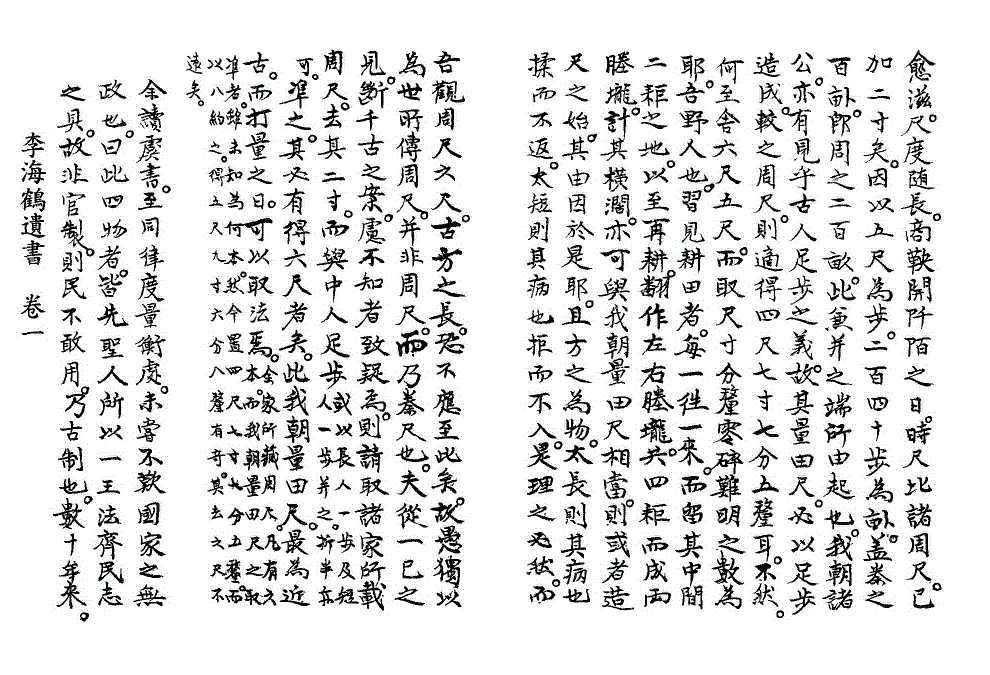 愈滋。尺度随長。商鞅開阡陌之日。時尺比諸周尺。已
加二寸矣。因以五尺為步。二百四十步為畝。盖秦之
百畝。卽周之二百畝。此兼并之端所由起也。我朝諸
公。亦有見乎古人足步之義。故其量田尺。必以足步
造成。較之周尺。則適得四尺七寸七分五釐耳。不然。
何至舍六尺五尺。而取尺寸分釐零碎難明之數為
耶。吾野人也。習見耕田者。每一徃一來。而留其中間
二耟之地。以至再耕。翻作左右塍壠。共四耟而成両
塍壠。計其横濶。亦可與我朝量田尺相當。則或者造
尺之始。其由因於是耶。且方之為物。太長則其病也
揉而不返。太短則其病也拒而不入。是理之必然。而
吾觀周尺之尺。古方之長。恐不應至此矣。故愚獨以
為世所傳周尺。并非周尺。而乃秦尺也。夫從一已之
見。斷千古之案。慮不知者致疑焉。則請取諸家所載
周尺。去其二寸。而與中人足步。或以長人一步及短人一步并之。折半亦
可。準之。其必有得六尺者矣。此我朝量田尺。最為近
古。而打量之日。可以取法焉。本全家所藏周尺。凡有六本。而我朝量田尺之取
準者。雖未知為何本。然今置四尺七寸七分五釐。而
以八約之。得五尺九寸六分八釐有奇。其去六尺不
遠矣。
余讀虞書。至同律度量衡處。未甞不歎國家之無
政也。曰此四物者。皆先聖人所以一王法齊民志
之具。故非官製。則民不敢用。乃古制也。數十年來。
李海鶴遺書 卷一